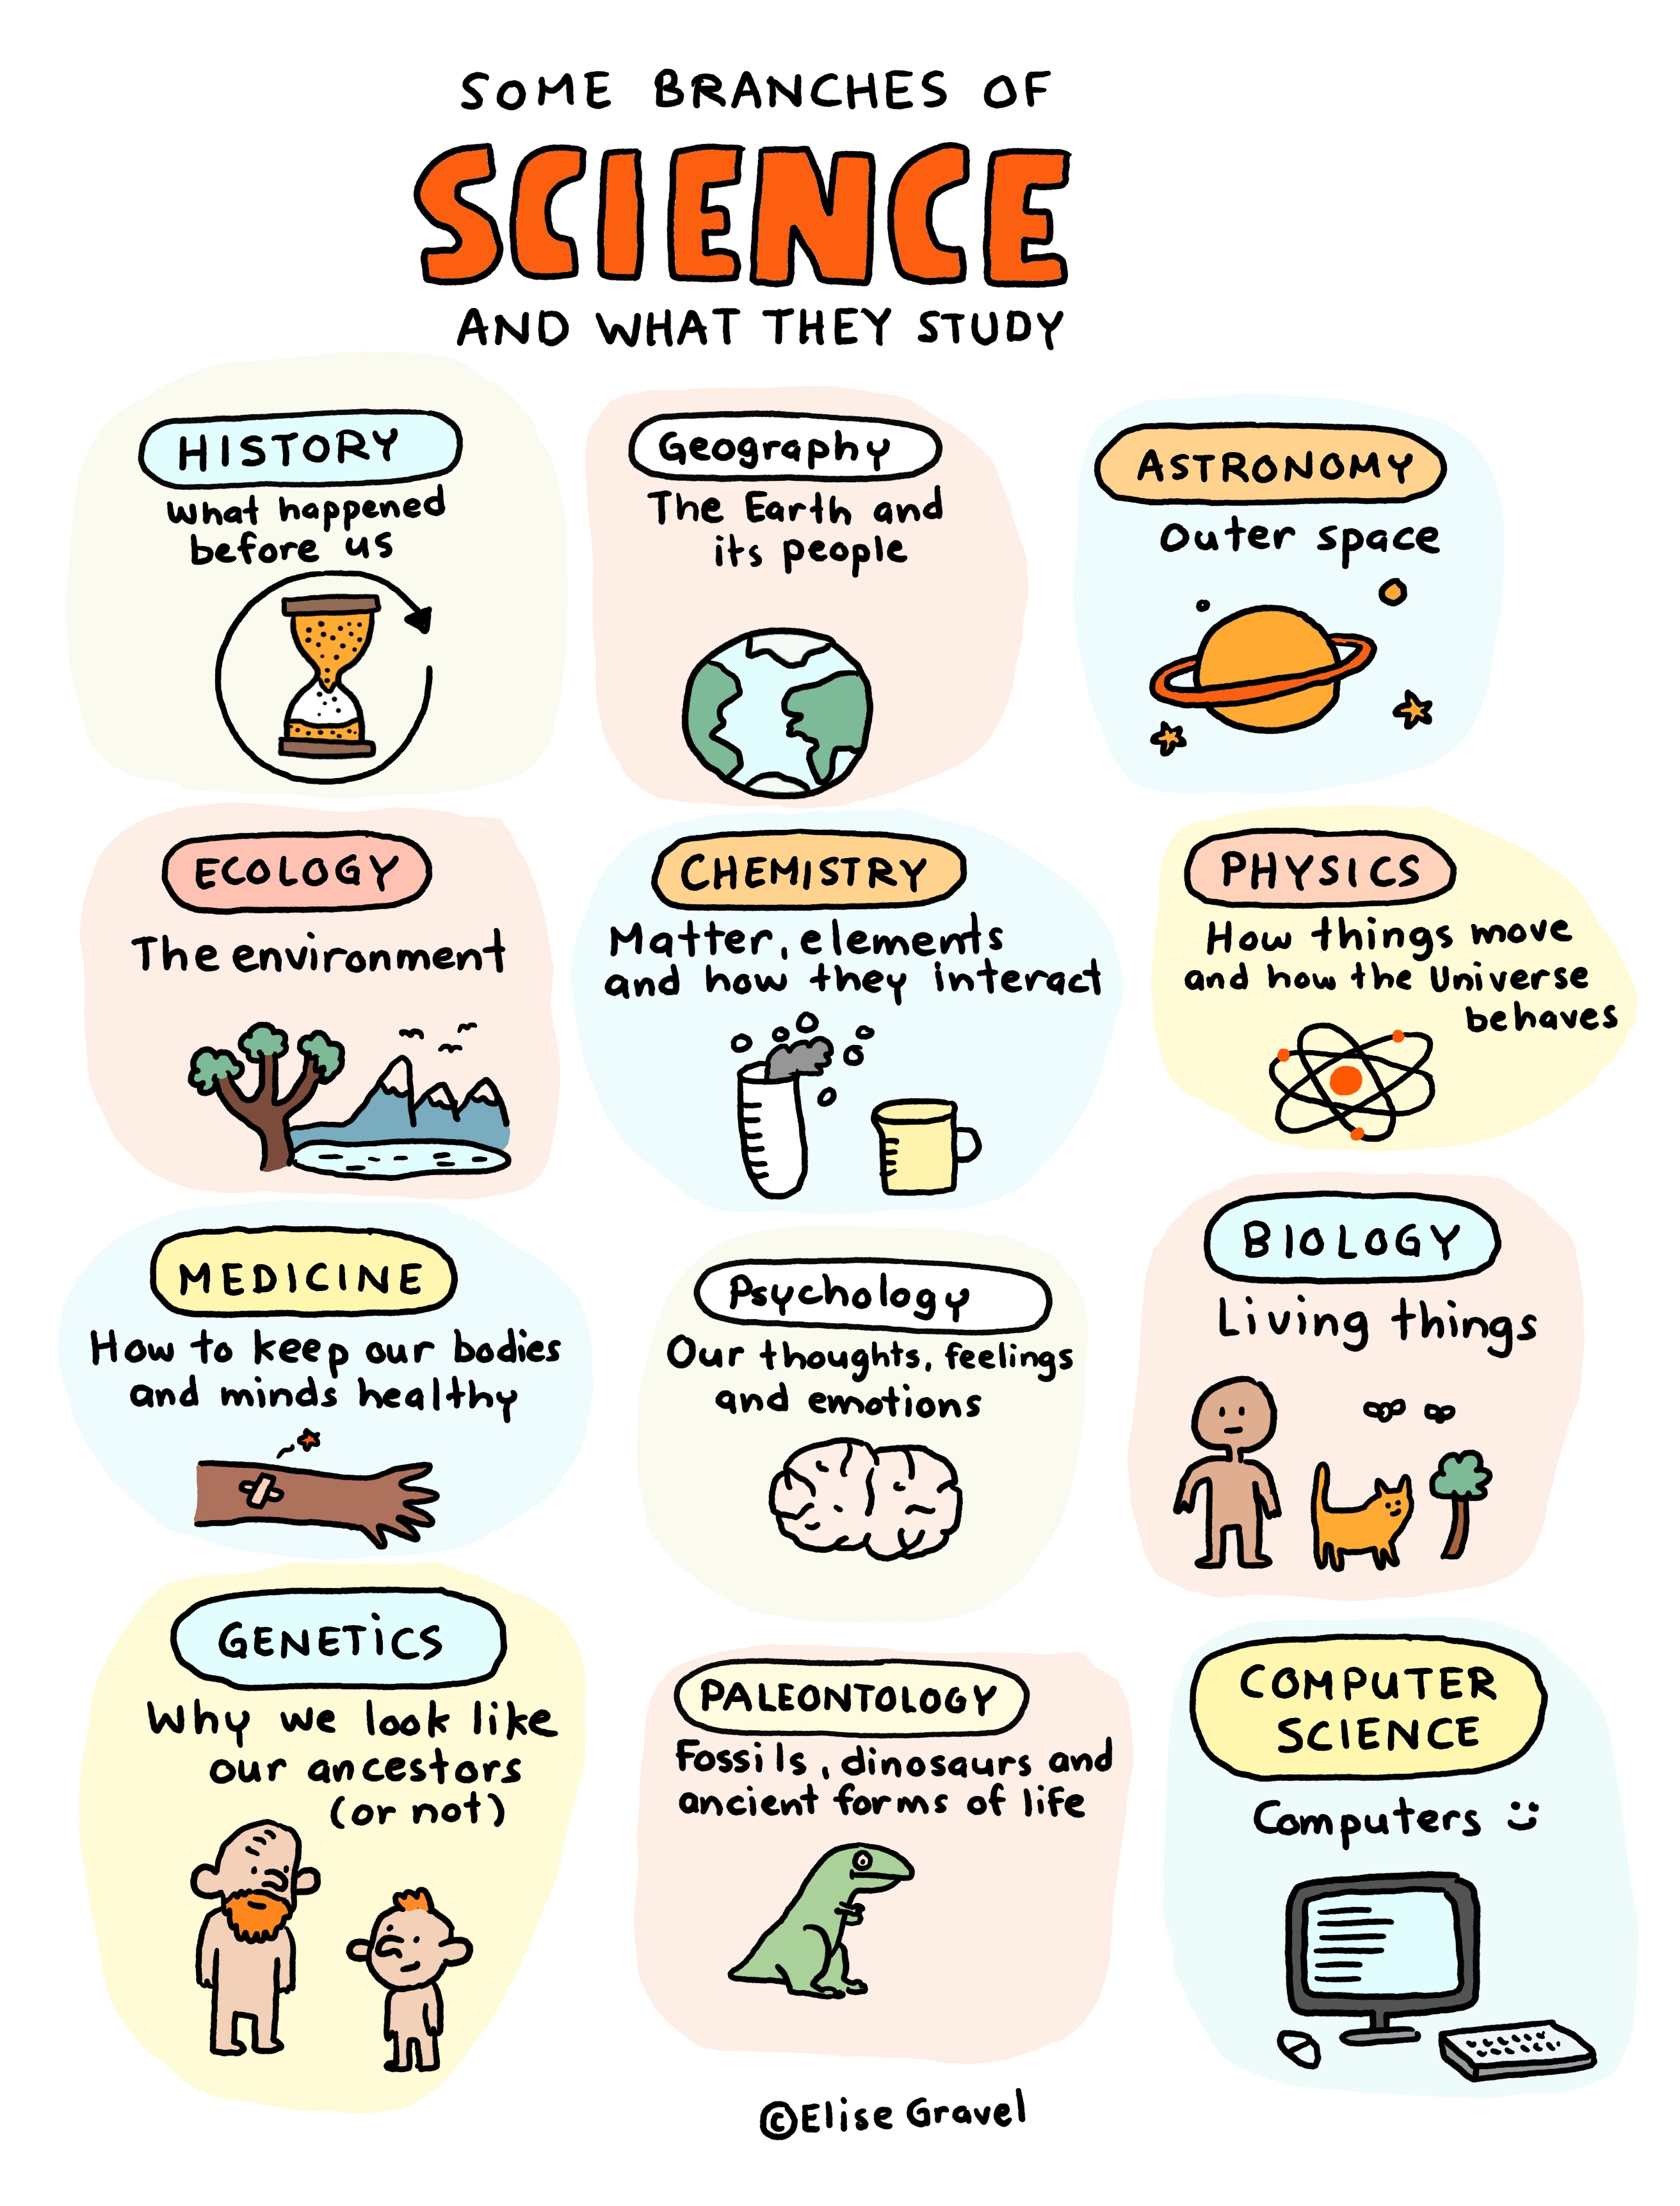 SOME BRANCHES OF
SCIENCE
AND WHAT THEY STUDY
HISTORY
What happened
before us
Geography
The Earth and
its people
ASTRONOMY
Outer space
ECOLOGY
The environment
CHEMISTRY
Matter, elements
and how they interact
PHYSICS
How things move
and how the Universe
behaves
MEDICINE
How to keep our bodies
and minds healthy
Psychology
Our thoughts, feelings
and emotions
BIOLOGY
Living things
GENETiCS
Why we look like
our ancestors
(or not)
PALEONTOLOGY
Fossils, dinosaurs and
ancient forms of life
COMPUTER
SCIENCE
Computers :)
©Elise Gravel